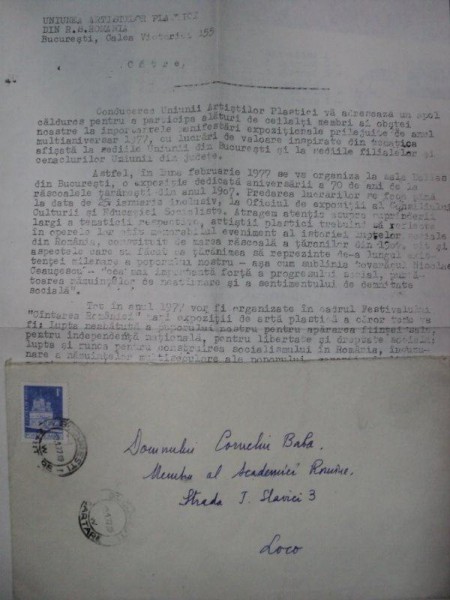 UNIUNEA ARTIŞTILOR PLASTICI
DIN R.S.ROMANIA
Bucureşti, Calea Victoriei 155
Către,
Conducerea Uniunii Artiştilor Plastici vă adresează un apel
călduros pentru a participa alături de ceilalţi membri ai obştei
noastre la importantele manifestări expoziţionale prilejuite de anul
multianiversar 1977, cu lucrări de valoare inspirate din tematica
afişată la sediile Uniunii din Bucureşti şi la sediile filialelor şi
cenaclurilor Uniunii din judeţe.
Astfel, în luna februarie 1977 se va organiza la sala Dalles
din Bucureşti, o expoziţie dedicată aniversării a 70 de ani de la
răscoalele ţărăneşti din anul 1907. Predarea lucrărilor se face pînă
la data de 25 ianuarie inclusiv, la Oficiul de expoziţii al Consiliului
Culturii şi Educaţiei Socialiste. Atragem atenţia asupra cuprinderii
largi a tematicii respective, artiştii plastici trebuind să reflecte
în operele lor atît memorabilul eveniment al istoriei luptelor sociale
din România, constituit de marea răscoală a ţăranilor din 1907, cît şi
aspectele care au făcut ca ţărănimea să reprezinte de-a lungul exis-
tenţei milenare a poporului nostru - aşa cum sublinia tovarăşul Nicolae
Ceauşescu - "cea mai importantă forţă a progresului social, păstră-
toarea năzuinţelor de neatîrnare şi a sentimentului de demnitate
socială".
Tot în anul 1977 vor fi organizate în cadrul Festivalului
"Cîntarea României" mari expoziţii de artă plastică a căror temă va
fi: lupta neabătută a poporului nostru pentru apărarea fiinţei sale,
pentru independenţă naţională, pentru libertate şi dreptate socială;
lupta şi munca pentru construirea socialismului în România,
nare a năzuinţelor multiseculare ale poporului
Domnului Corneliu Baba
Membru al Academiei Române.
Strada I. Slavici 3
Loco
BUCUREŞTI